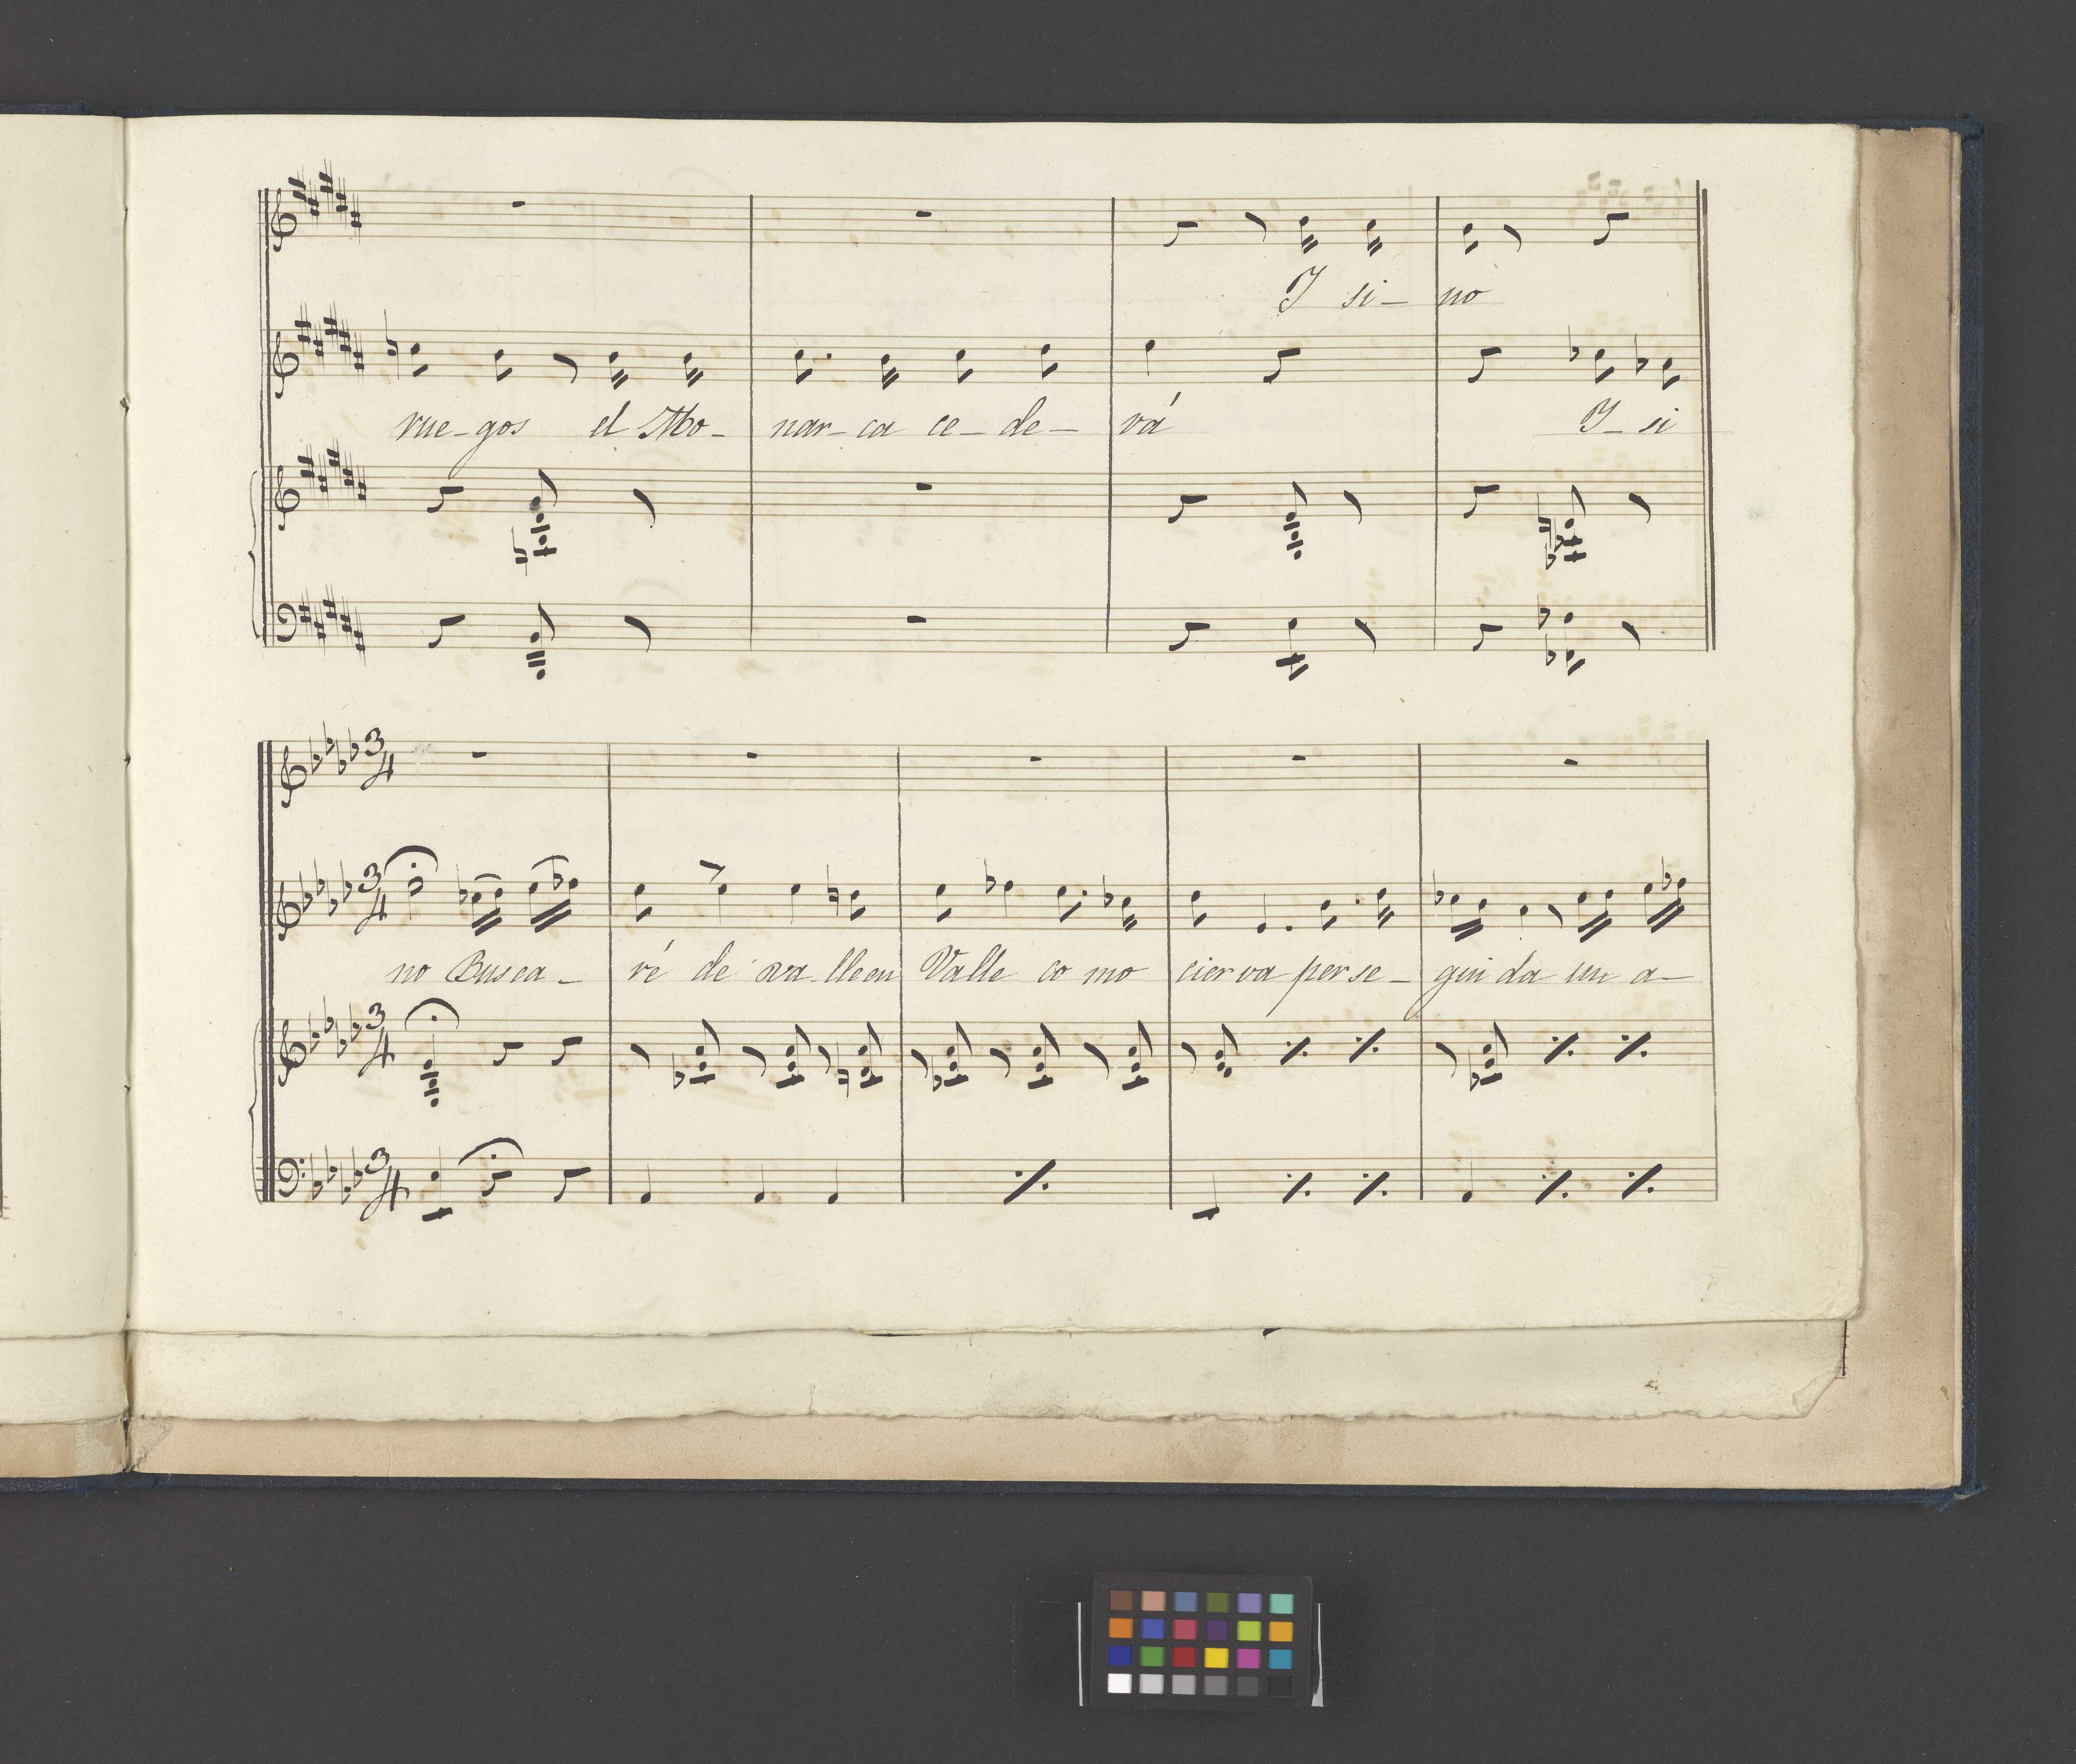 Y si_ no
rue_gos el Mo_ nar_ca ce_de_ rá Y_ si
3/4
3/4 no Busca_ ré de va_lle en Valle co mo cierva perse_ guida un a_
3/4
3/4